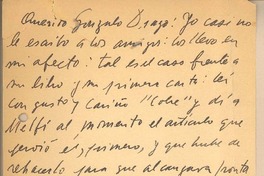 Querido Gonzalo Drago: Yo casi no
le escribo a los amigos: los llevo en
mi afecto: tal es el caso frente a
su libro y mi primera carta: leí
con gusto y cariño "Cobre" y dí a
Melfi al momento el artículo que
envió él, primero, y que hube de
rehacerlo para que alcanzara pronta